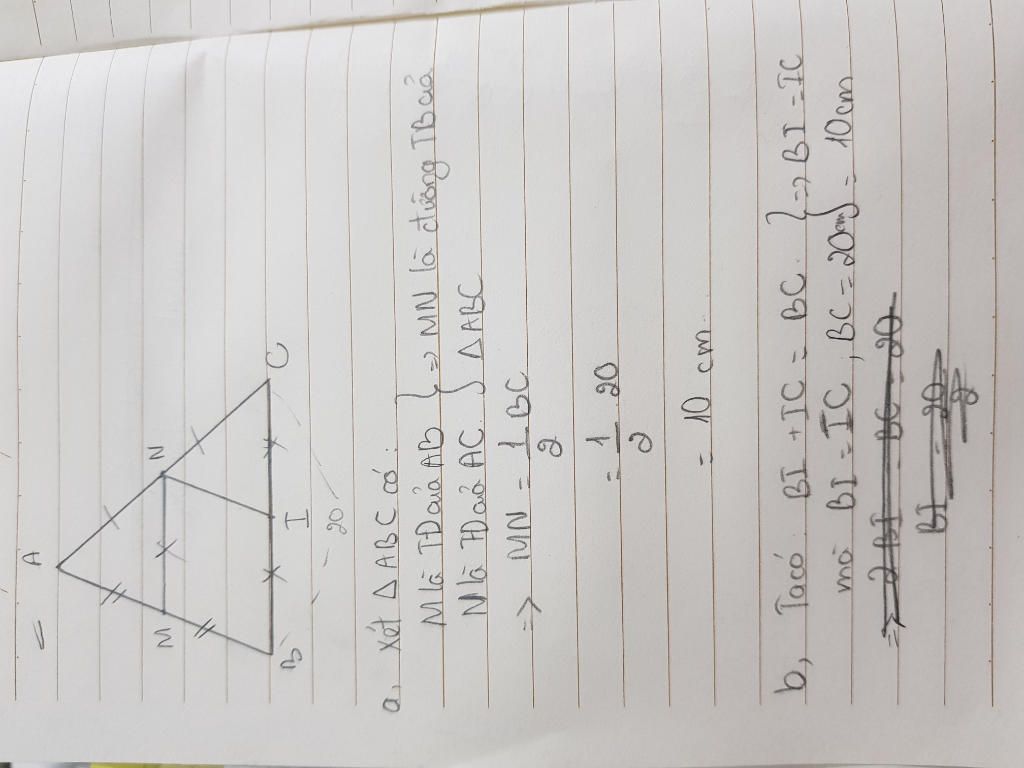 A
M
N
B
I
C
20
a, Xét △ABC có:
M là TĐ của AB } => MN là đường TB của
N là TĐ của AC } △ABC
=> MN = 1/2 BC
= 1/2 . 20
= 10 cm
b, Ta có BI + IC = BC } => BI = IC
mà BI = IC, BC = 20cm } = 10cm
=> 2 BI = BC = 20
BI = 20/2